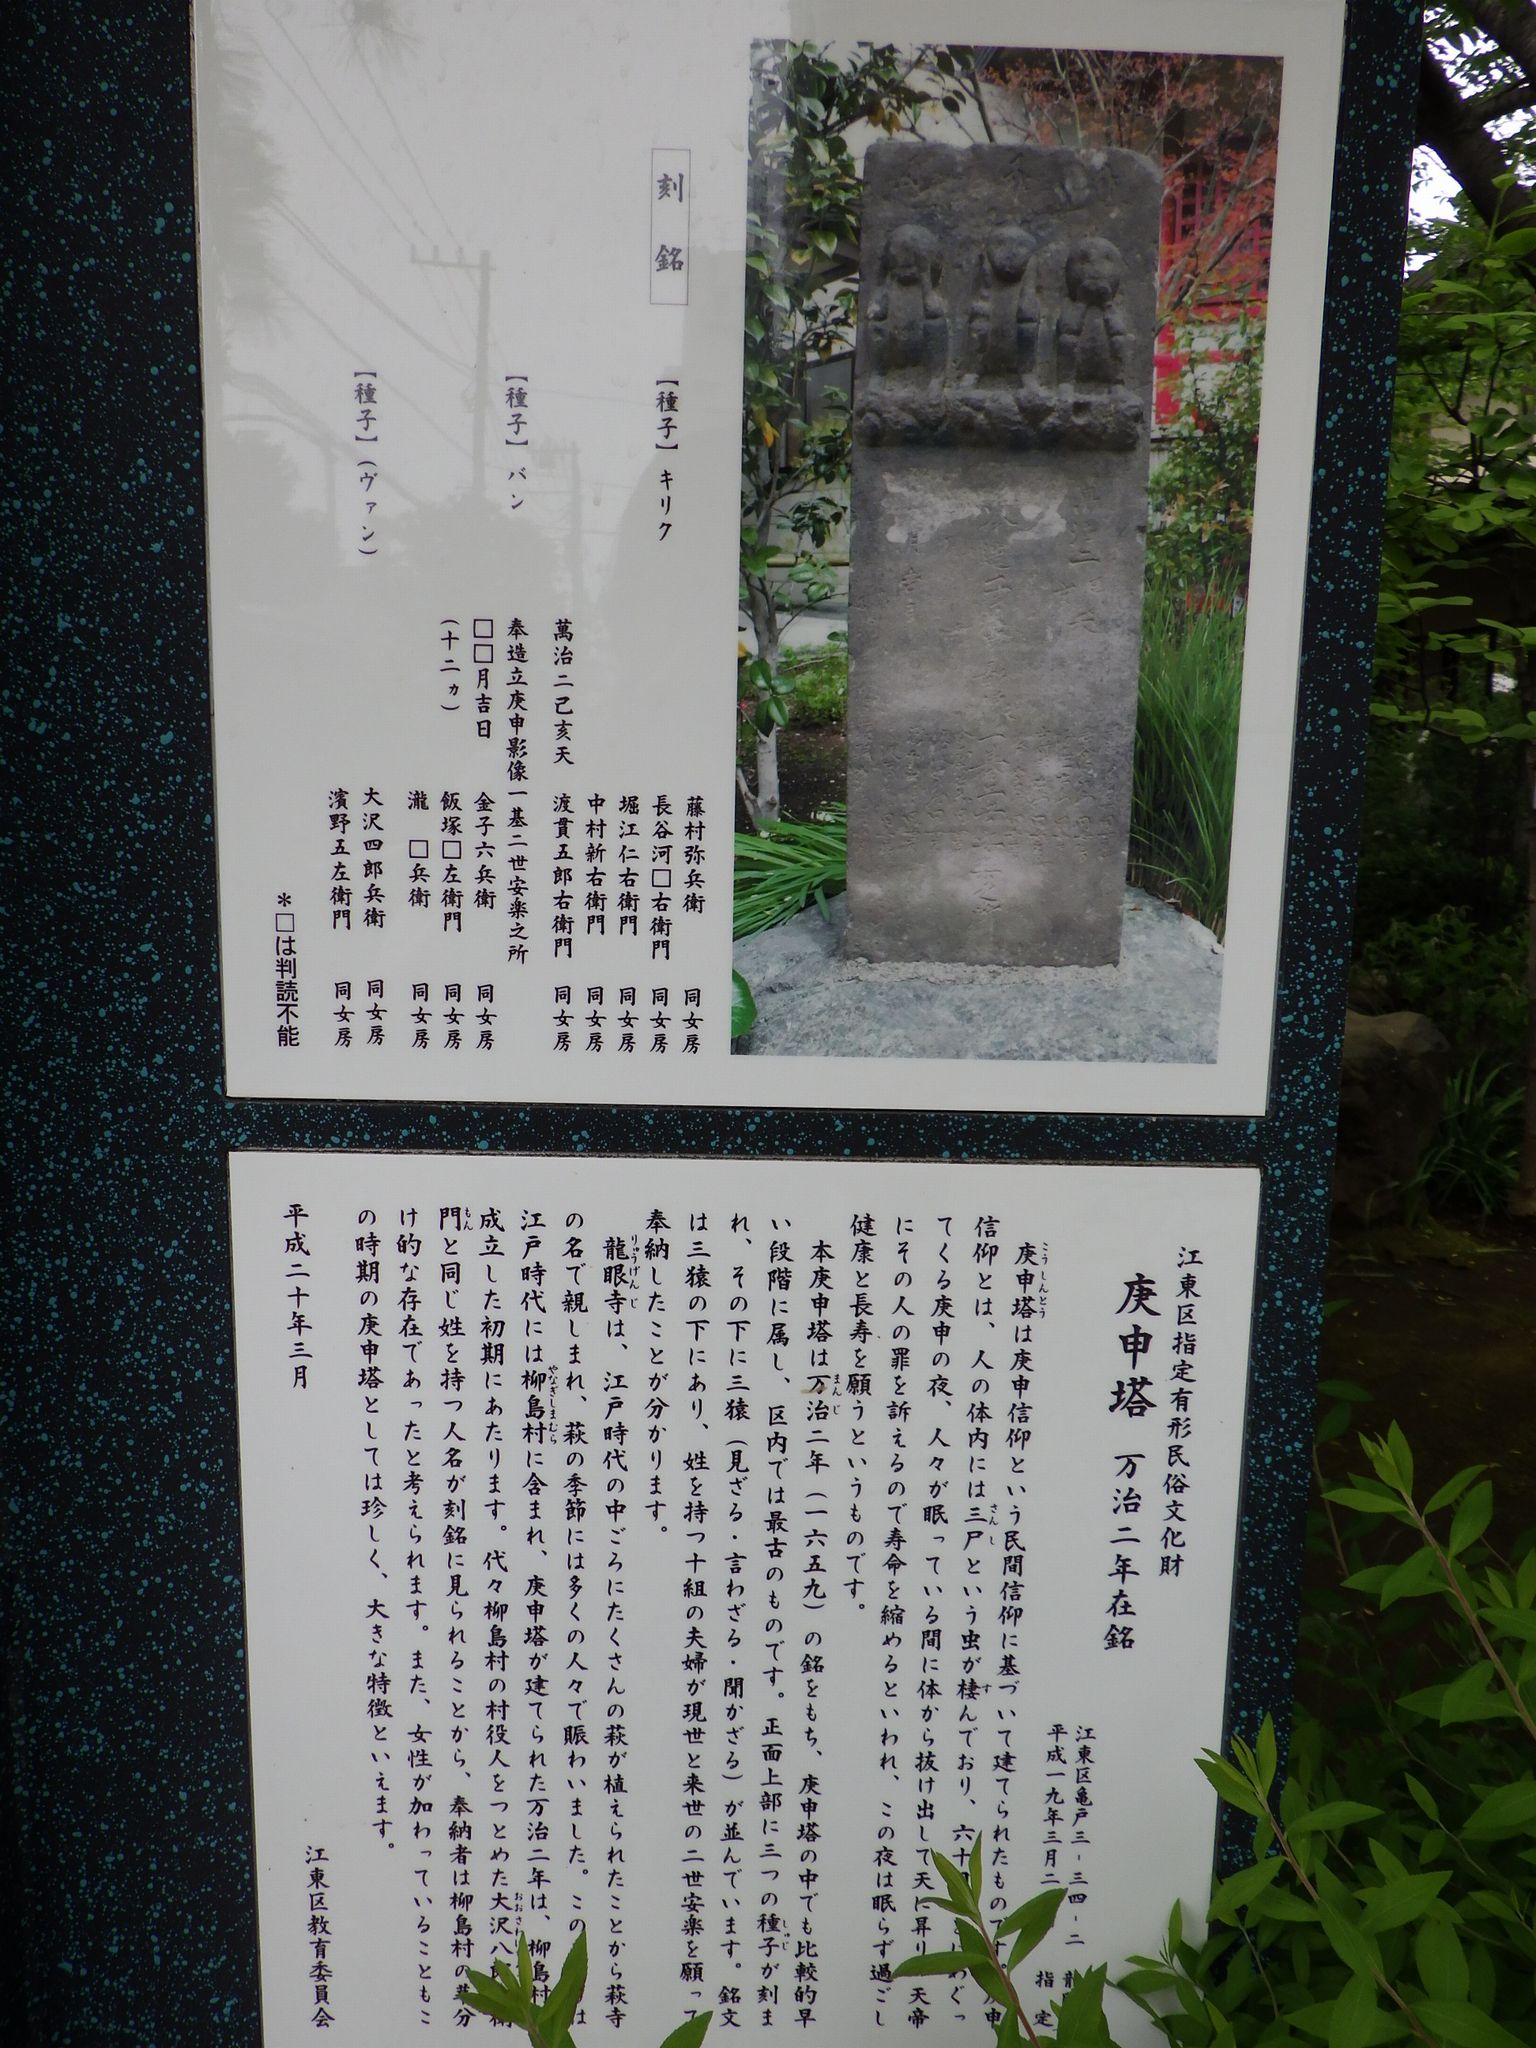 刻銘
【種子】キリク
【種子】バン
【種子】(ヴァン)
藤村弥兵衛 同女房
長谷河□右衛門 同女房
堀江仁右衛門 同女房
中村新右衛門 同女房
萬治二己亥天 渡貫五郎右衛門 同女房
奉造立庚申影像一基二世安楽之所
□□月吉日 金子六兵衛 同女房
(十二ヵ) 飯塚□左衛門 同女房
瀧 □兵衛 同女房
大沢四郎兵衛 同女房
濱野五左衛門 同女房
*□は判読不能
江東区指定有形民俗文化財
庚申塔 万治二年在銘
江東区亀戸三-三四-二 龍
平成一九年三月二 指定
庚申塔は庚申信仰という民間信仰に基づいて建てられたものです。 申
信仰とは、人の体内には三尸という虫が棲んでおり、六十 めぐっ
てくる庚申の夜、人々が眠っている間に体から抜け出して天に昇り 天帝
にその人の罪を訴えるので寿命を縮めるといわれ、この夜は眠らず過ごし
健康と長寿を願うというものです。
本庚申塔は万治二年(一六五九)の銘をもち、庚申塔の中でも比較的早
い段階に属し、区内では最古のものです。正面上部に三つの種子が刻ま
れ、その下に三猿(見ざる・言わざる・聞かざる)が並んでいます。銘文
は三猿の下にあり、姓を持つ十組の夫婦が現世と来世の二世安楽を願って
奉納したことが分かります。
龍眼寺は、江戸時代の中ごろにたくさんの萩が植えられたことから萩寺
の名で親しまれ、萩の季節には多くの人々で賑わいました。この は
江戸時代には柳島村に含まれ、庚申塔が建てられた万治二年は、柳島村
成立した初期にあたります。代々柳島村の村役人をつとめた大沢八 衛
門と同じ姓を持つ人名が刻銘に見られることから、奉納者は柳島村の草分
け的な存在であったと考えられます。また、女性が加わっていることもこ
の時期の庚申塔としては珍しく、大きな特徴といえます。
平成二十年三月
江東区教育委員会